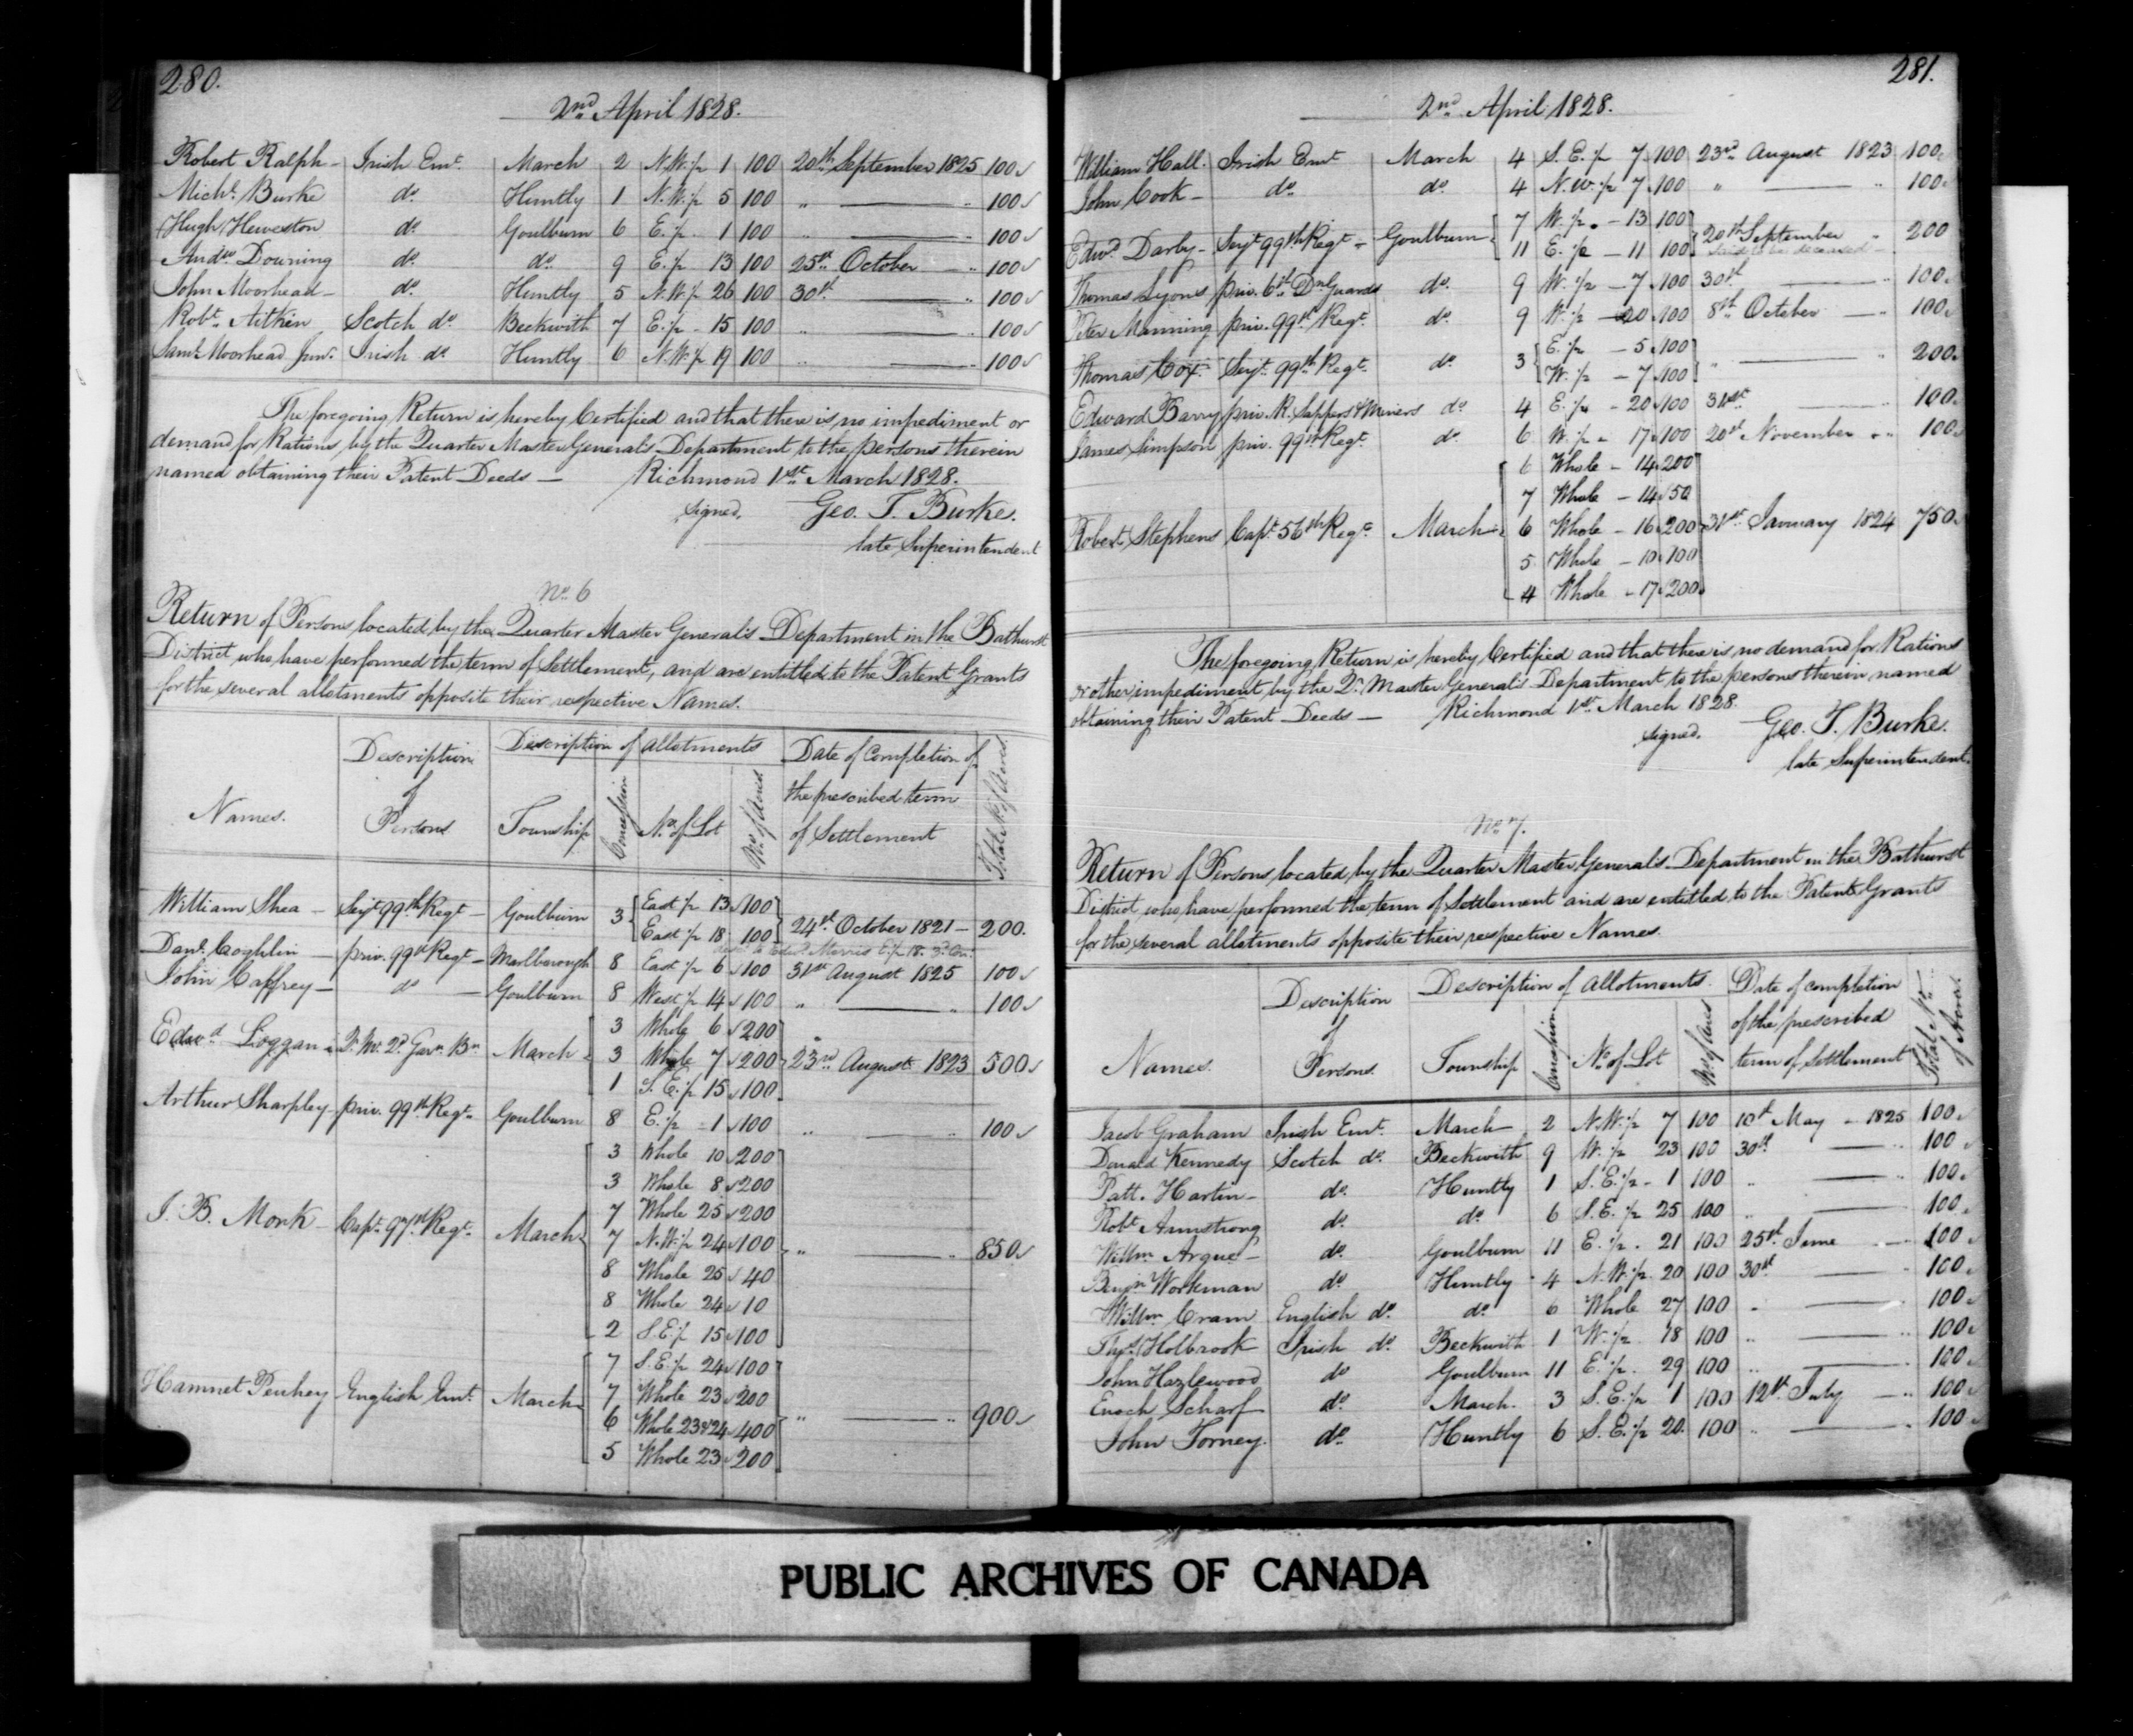 280.
2nd April 1828.
Robert Ralph - Irish Emt. March 2 N.W. ½ 1 100 20th September 1825 100
Michl. Burke do. Huntly 1 N.W. ½ 5 100 " " 100
Hugh Heweston do. Goulburn 6 E. ½ 1 100 " " 100
Andw. Downing do. do. 9 E. ½ 13 100 25th October " 100
John Moorhead - do. Huntly 5 N.W. ½ 26 100 30th " 100
Robt. Aitken Scotch do. Beckwith 7 E. ½ - 15 100 " " 100
Saml. Moorhead Junr. Irish do. Huntly 6 N.W. ½ 19 100 " " 100
The foregoing Return is hereby Certified and that there is no impediment or
demand for Rations by the Quarter Master General's Department to the persons therein
named obtaining their Patent Deeds — Richmond 1st March 1828.
signed. Geo. T. Burke.
late Superintendent
No. 6
Return of Persons located by the Quarter Master General's Department in the Bathurst
District who have performed the term of Settlement, and are entitled to the Patent Grants
for the several allotments opposite their respective Names.
Names. Description of Persons Description of allotments Township Concession No. of Lot No. of Acres Date of Completion of the prescribed term of Settlement Total No. of Acres
William Shea - Serjt 99th Regt - Goulburn 3 East ½ 13 100 24th October 1821 - 200.
East ½ 18 100
Morris E ½ 18. 3d Con.
Danl. Coghlin - priv. 99th Regt - Marlborough 8 East ½ 6 100 31st August 1825 100
John Caffrey - do - Goulburn 8 West ½ 14 100 " " 100
Edwd. Loggan March 3 Whole 6 200 23rd August 1823 500
3 Whole 7 200
1 S.E. ½ 15 100
Arthur Sharpley - priv. 99th Regt. Goulburn 8 E. ½ - 1 100 " " 100
J. B. Monk - Capt. 97th Regt. March 3 Whole 10 200 " " 850
3 Whole 8 200
7 Whole 25 200
7 N.W. ½ 24 100
8 Whole 25 40
8 Whole 24 10
2 S.E. ½ 15 100
Hamnet Penhey English Emt. March 7 S.E. ½ 24 100 " " 900
7 Whole 23 200
6 Whole 23 & 24 400
5 Whole 23 200
281.
2nd April 1828.
William Hall. Irish Emt March 4 S.E. ½ 7 100 23rd August 1823 100
John Cook - do. do. 4 N.W. ½ 7 100 " " 100
Edwd. Darby - Serjt 99th Regt - Goulburn 7 W. ½ - 13 100 20th September " 200
11 E. ½ - 11 100 said to be deceased
Thomas Lyons priv. 6th Dn. Guards do. 9 W. ½ - 7 100 30th " 100
Peter Manning priv. 99th Regt. do. 9 W. ½ - 20 100 8th October " 100
Thomas Cox Serjt. 99th Regt. do. 3 E. ½ - 5 100 " " 200
W. ½ - 7 100
Edward Barry priv. R. Sappers & Miners do. 4 E. ½ - 20 100 31st " 100
James Simpson priv. 99th Regt. do. 6 W. ½ - 17 100 20th November " 100
Robert Stephens Capt. 56th Regt. March 6 Whole - 14 200 31st January 1824 750
7 Whole - 14 50
6 Whole - 16 200
5 Whole - 10 100
4 Whole - 17 200
The foregoing Return is hereby Certified and that there is no demand for Rations
or other impediment by the Qr. Master General's Department to the persons therein named
obtaining their Patent Deeds — Richmond 1st March 1828.
signed. Geo. T. Burke.
late Superintendent.
No. 7.
Return of Persons located by the Quarter Master General's Department in the Bathurst
District who have performed the term of Settlement and are entitled to the Patent Grants
for the several allotments opposite their respective Names.
Names. Description of Persons. Description of allotments. Township Concession No. of Lot No. of Acres Date of completion of the prescribed term of Settlement Total No. of Acres
Jacob Graham Irish Emt. March 2 N.W. ½ 7 100 10th May - 1825 100
Donald Kennedy Scotch do. Beckwith 9 W. ½ 23 100 30th " 100
Patt. Hartin - do. Huntly 1 S.E. ½ - 1 100 " " 100
Robt Armstrong do. do. 6 S.E. ½ 25 100 " " 100
Willm. Argue - do. Goulburn 11 E. ½ . 21 100 25th June " 100
Benjn. Workman do. Huntly 4 N.W. ½ 20 100 30th " 100
Willm. Cram English do. do. 6 Whole 27 100 " " 100
Thos. Holbrook Irish do. Beckwith 1 W. ½ 18 100 " " 100
John Hazlewood do Goulburn 11 E. ½ . 29 100 " " 100
Enoch Scharf do. March. 3 S.E. ½ 1 100 12th July " 100
John Torney. do. Huntly 6 S.E. ½ 20. 100 " " 100
PUBLIC ARCHIVES OF CANADA